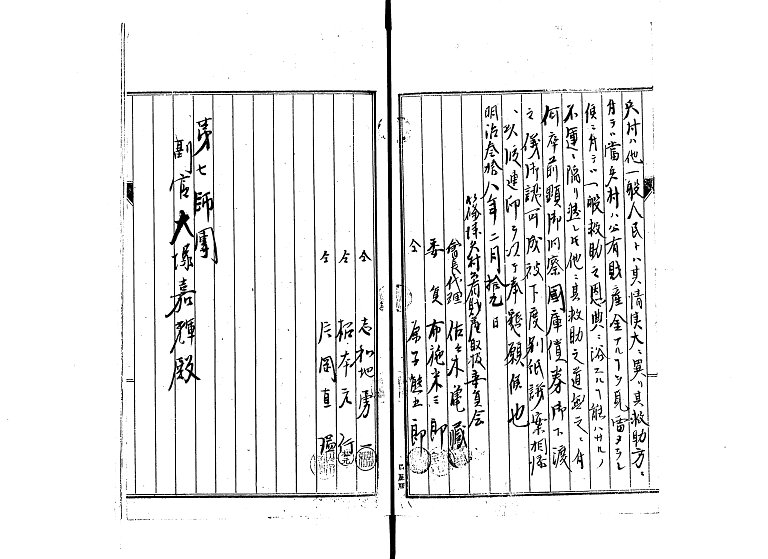 兵村ハ他一般人民トハ其情実大ニ異リ其救助方ニ
付テハ當兵村ハ公有財産金アルヲ以見雷ヲラレ
候ニ付テハ一般救助之恩典ニ浴スル能ハサルノ
不運ニ陥リ遂ニ他ニ其救助之道無之ニ付
何卒前顕御洞察國庫債券御下渡
之儀御認可成被下度別紙議案相添
以段連印ヲ以テ奉懇願候也
明治参拾八年二月拾九日
篠路兵村公有財産取扱委員会
會長代理 佐々木亀藏
委員 布施米三郎
仝 金子熊五郎
仝 志和地勇一
仝 柘本元行
仝 片岡直温
第七師團
副官大塚嘉輝殿